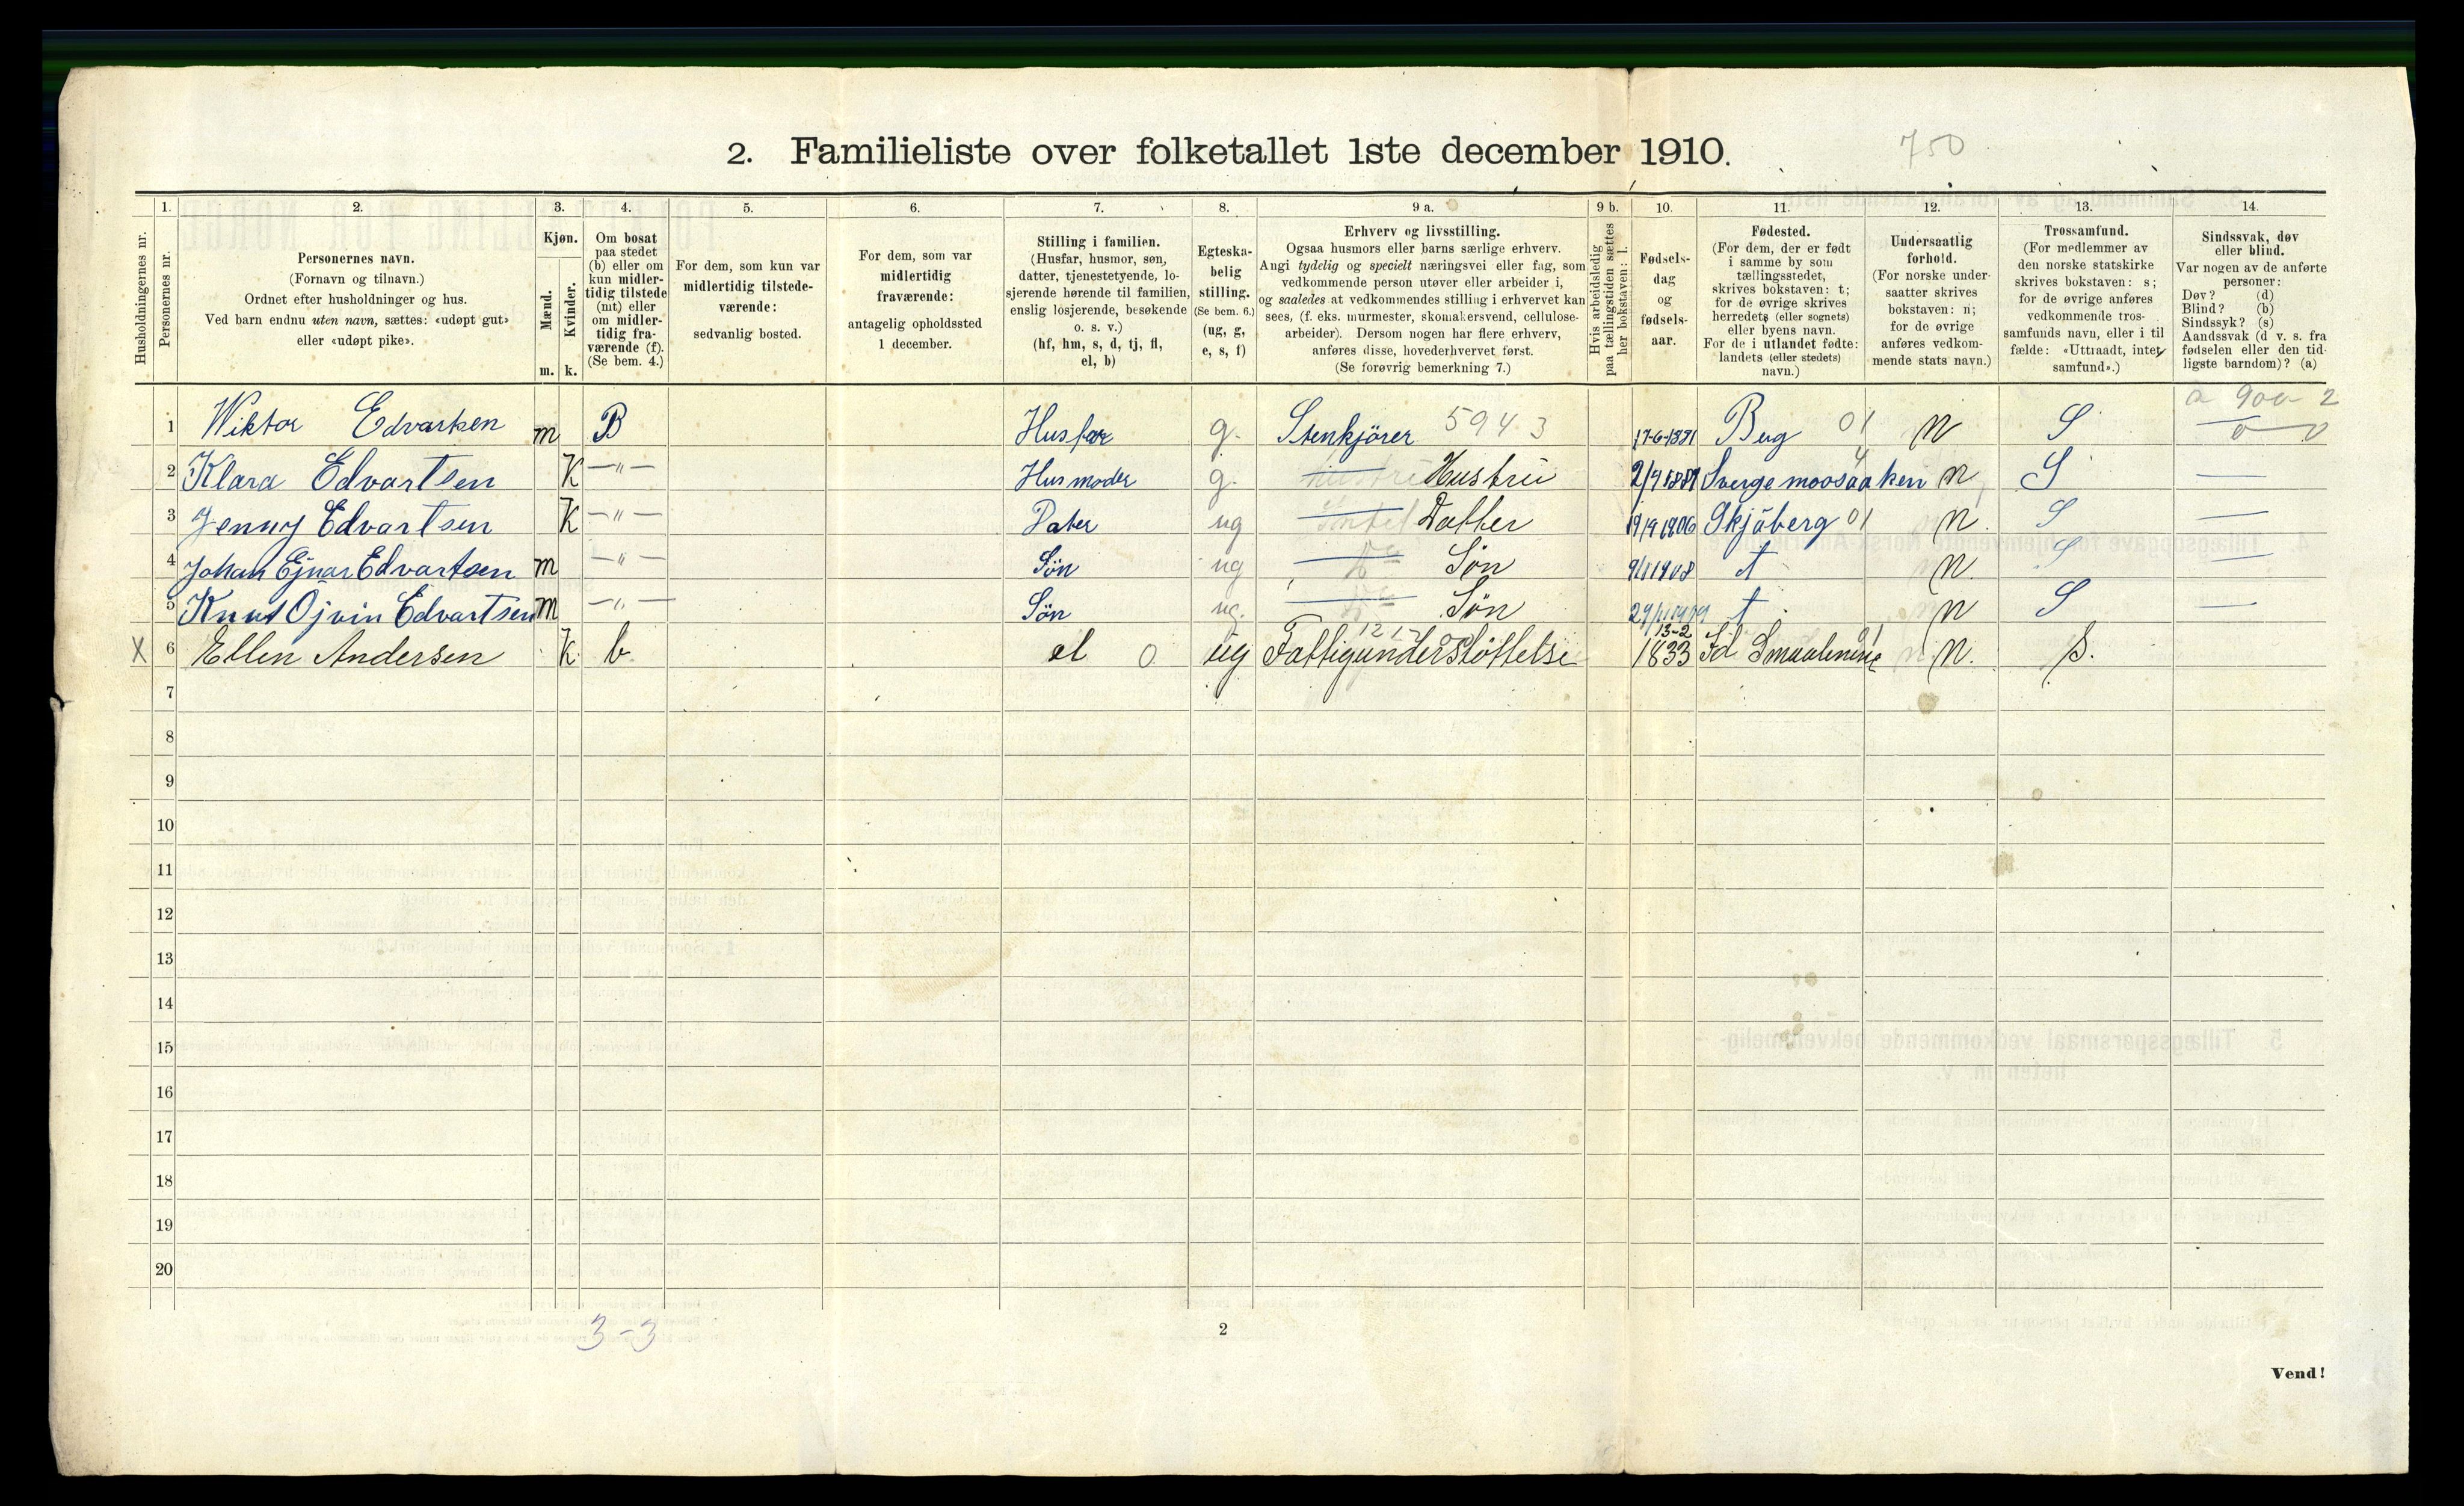 2. Familieliste over folketallet 1ste december 1910.
750
Husholdningernes nr.
1.
Personernes nr.
2.
Personernes navn.
(Fornavn og tilnavn.)
Ordnet efter husholdninger og hus.
Ved barn endnu uten navn, sættes: «udøpt gut»
eller «udøpt pike».
3.
Kjøn.
Mænd.
Kvinder.
m. k.
4.
Om bosat
paa stedet
(b) eller om
kun midler-
tidig tilstede
(mt) eller
om midler-
tidig fra-
værende (f).
(Se bem. 4.)
5.
For dem, som kun var
midlertidig tilstede-
værende:
sedvanlig bosted.
6.
For dem, som var
midlertidig
fraværende:
antagelig opholdssted
1 december.
7.
Stilling i familien.
(Husfar, husmor, søn,
datter, tjenestetyende, lo-
sjerende hørende til familien,
enslig losjerende, besøkende
o. s. v.)
(hf, hm, s, d, tj, fl,
el, b)
8.
Egteska-
belig
stilling.
(Se bem. 6.)
(ug, g,
e, s, f)
9 a.
Erhverv og livsstilling.
Ogsaa husmors eller barns særlige erhverv.
Angi tydelig og specielt næringsvei eller fag, som
vedkommende person utøver eller arbeider i,
og saaledes at vedkommendes stilling i erhvervet kan
sees, (f. eks. murmester, skomakersvend, cellulose-
arbeider). Dersom nogen har flere erhverv,
anføres disse, hovederhvervet først.
(Se forøvrig bemerkning 7.)
9 b.
Hvis arbeidsledig
paa tællingstiden sættes
her bokstaven: l.
10.
Fødsels-
dag
og
fødsels-
aar.
11.
Fødested.
(For dem, der er født
i samme by som
tællingsstedet,
skrives bokstaven: t;
for de øvrige skrives
herredets (eller sognets)
eller byens navn.
For de i utlandet fødte:
landets (eller stedets)
navn.)
12.
Undersaatlig
forhold.
(For norske under-
saatter skrives
bokstaven: n;
for de øvrige
anføres vedkom-
mende stats navn.)
13.
Trossamfund.
(For medlemmer av
den norske statskirke
skrives bokstaven: s;
for de øvrige anføres
vedkommende tros-
samfunds navn, eller i til
fælde: «Uttraadt, intet
samfund».)
14.
Sindssvak, døv
eller blind.
Var nogen av de anførte
personer:
Døv? (d)
Blind? (b)
Sindssyk? (s)
Aandssvak (d v. s. fra
fødselen eller den tid-
ligste barndom)? (a)
1 Wiktor Edvartsen m B Husfar g. Stenkjörer 5943 17-6-1881 Bug 01 n S
2 Klara Edvartsen K —"— Husmoder g. Hustru 2/9 1881 Sverge moosaaken n S —
3 Jenny Edvartsen K —"— Dater ug Datter 19/9 1906 Skjäberg 01 n. S —
4 Johan Ejnar Edvartsen m —"— Sön ug Sön 9/1 1908 t n. S —
5 Knut Ojvin Edvartsen m —"— Sön ug. Sön t n S —
X 6 Ellen Andersen K b. el 0 ug Fattigunderstöttelse 13-2 1833 Id Smaalenene n. s.
7
8
9
10
11
12
13
14
15
16
17
18
19
20
3-3
2
Vend!